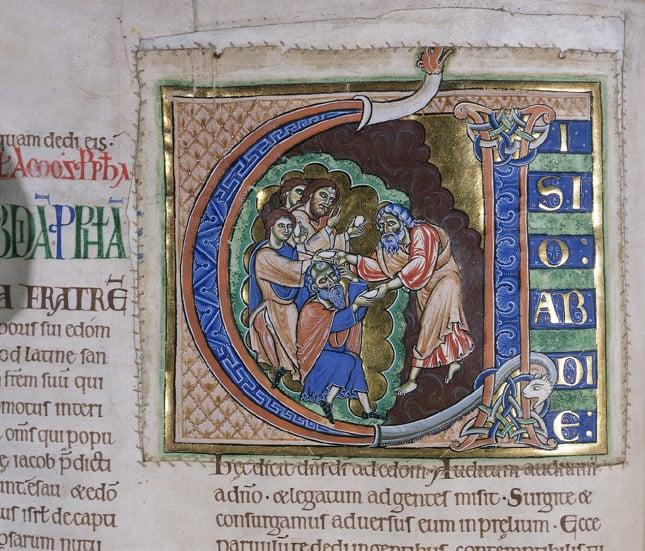 quam dedi eis:
AMOS PPHA
ABDIA PPHA
A FRATRĒ
poris sui edom
od latine san
frem suū qui
motus interi
omīs qui popu
iacob pdicti
int esau & edō
us isrł de capti
osarum nutu
VISIO: ABDIE:
Hec dicit dns ds ad edom. Auditum audiuimus
a dño. & legatum ad gentes misit. Surgite &
consurgamus aduersus eum in prelium. Ecce
paruulū te dedi in gentibus contemptibilis